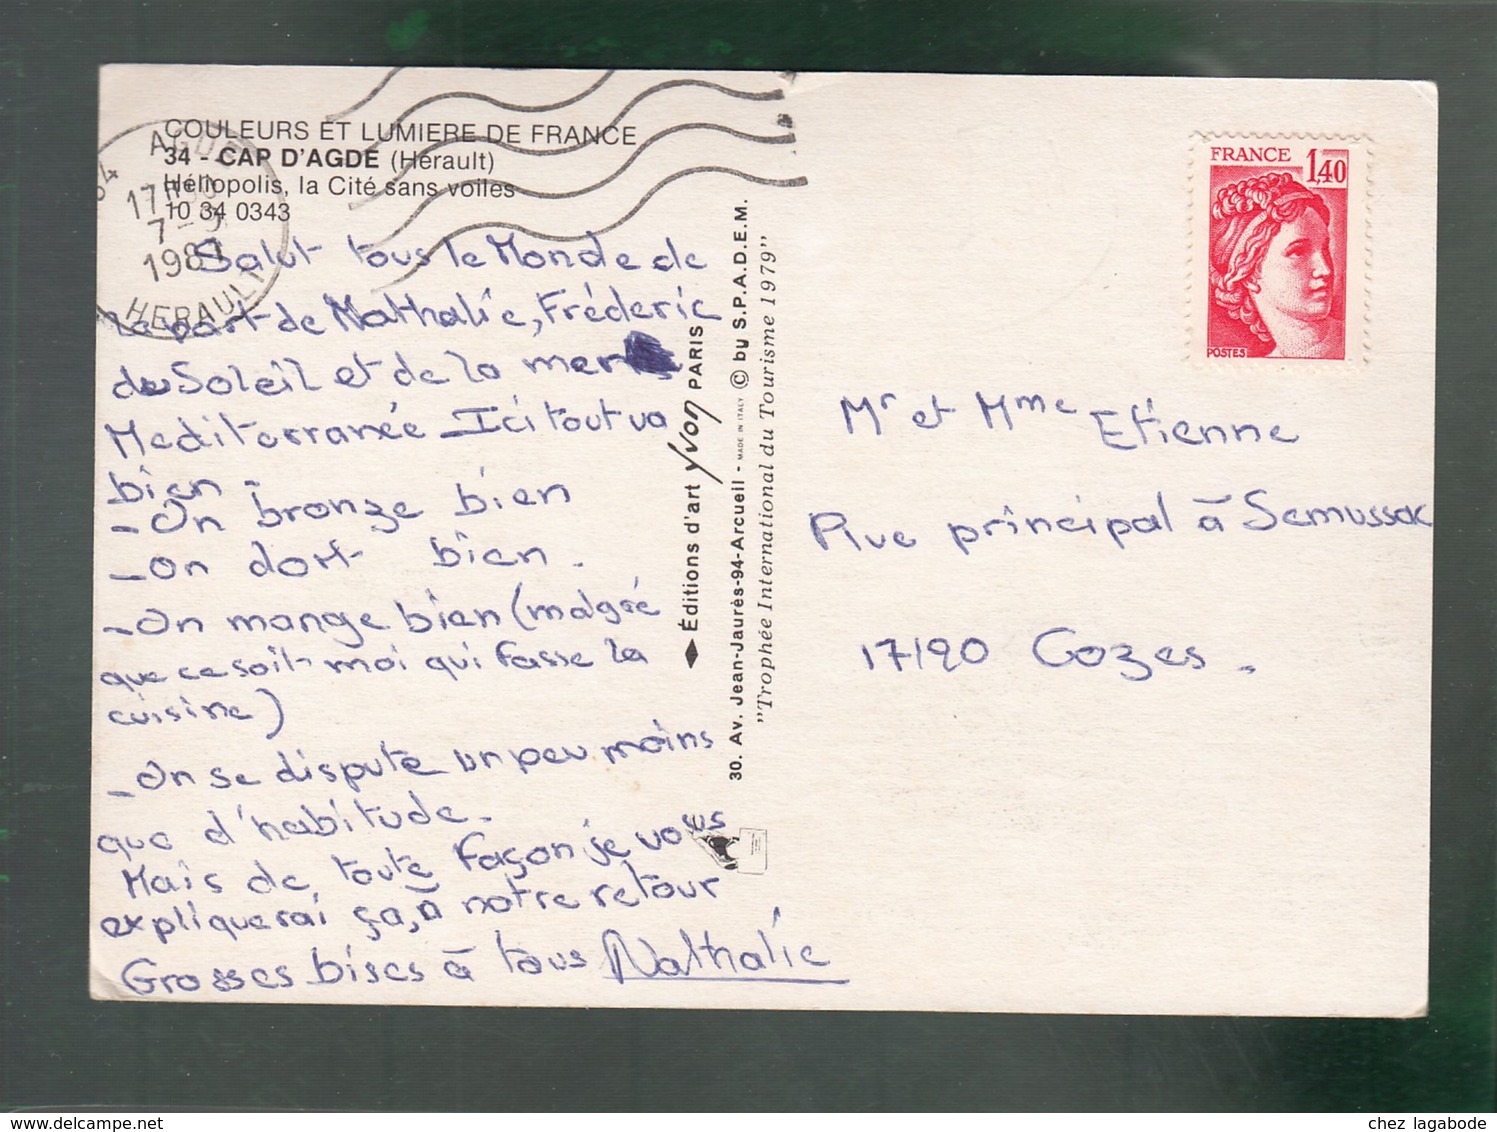 COULEURS ET LUMIERE DE FRANCE
34 - CAP D'AGDE (Hérault)
Héliopolis, la Cité sans voiles
10 34 0343
AGDE
17H
7-9
HERAULT
Salut tous le Monde de
la part de Nathalie, Fréderic
du Soleil et de la mer
Mediterrranée - Ici tout va
bien -
- On bronze bien
- On dort bien.
- On mange bien (malgré
que ce soit moi qui fasse la
cuisine)
- On se dispute un peu moins
que d'habitude.
Mais de toute façon je vous
expliquerai ça, à notre retour
Grosses bises à tous Nathalie
Éditions d'art yvon PARIS
30. Av. Jean-Jaurès-94-Arcueil - MADE IN ITALY © by S.P.A.D.E.M.
"Trophée International du Tourisme 1979"
FRANCE 1,40
POSTES
Mr et Mme Etienne
Rue principal à Semussac
17120 Cozes.
chez lagabode